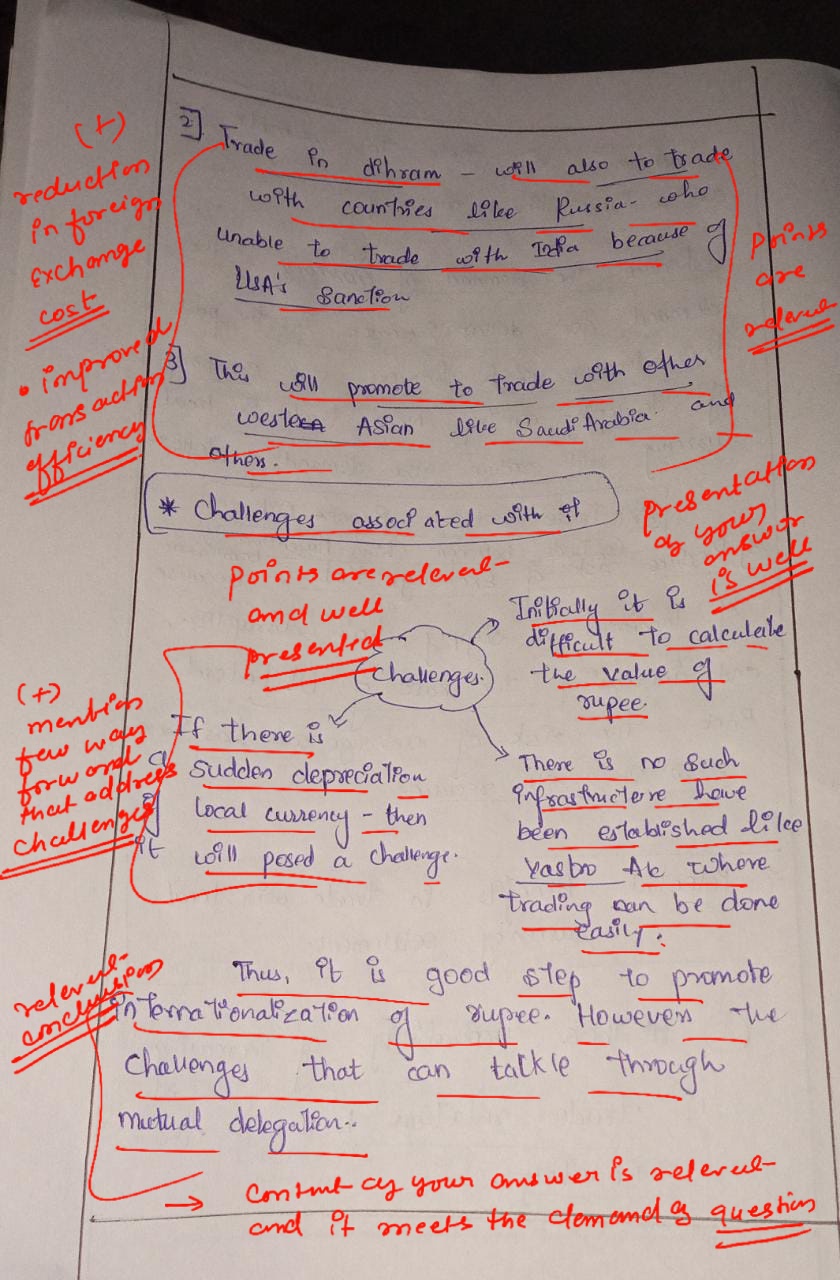 (+)
reduction
in foreign
exchange
cost
• improved
transaction
efficiency
2] Trade in dihram - will also to trade
with countries like Russia - who
unable to trade with India because of
USA's Sanction
points
are
relevant
3] This will promote to trade with other
western Asian like Saudi Arabia and
others.
* Challenges associated with it
presentation
of your
answer
is well
points are relevant
and well
presented
Challenges.
Initially it is
difficult to calculate
the value of
rupee.
(+)
mention
few way
forward
that address
challenges
If there is
a sudden depreciation
of local currency - then
it will posed a challenge.
There is no such
infrastructure have
been established like
where
trading can be done
easily.
relevant
conclusion
Thus, it is good step to promote
internationalization of rupee. However the
challenges that can tackle through
mutual delegation.
→ content of your answer is relevant
and it meets the demand of question